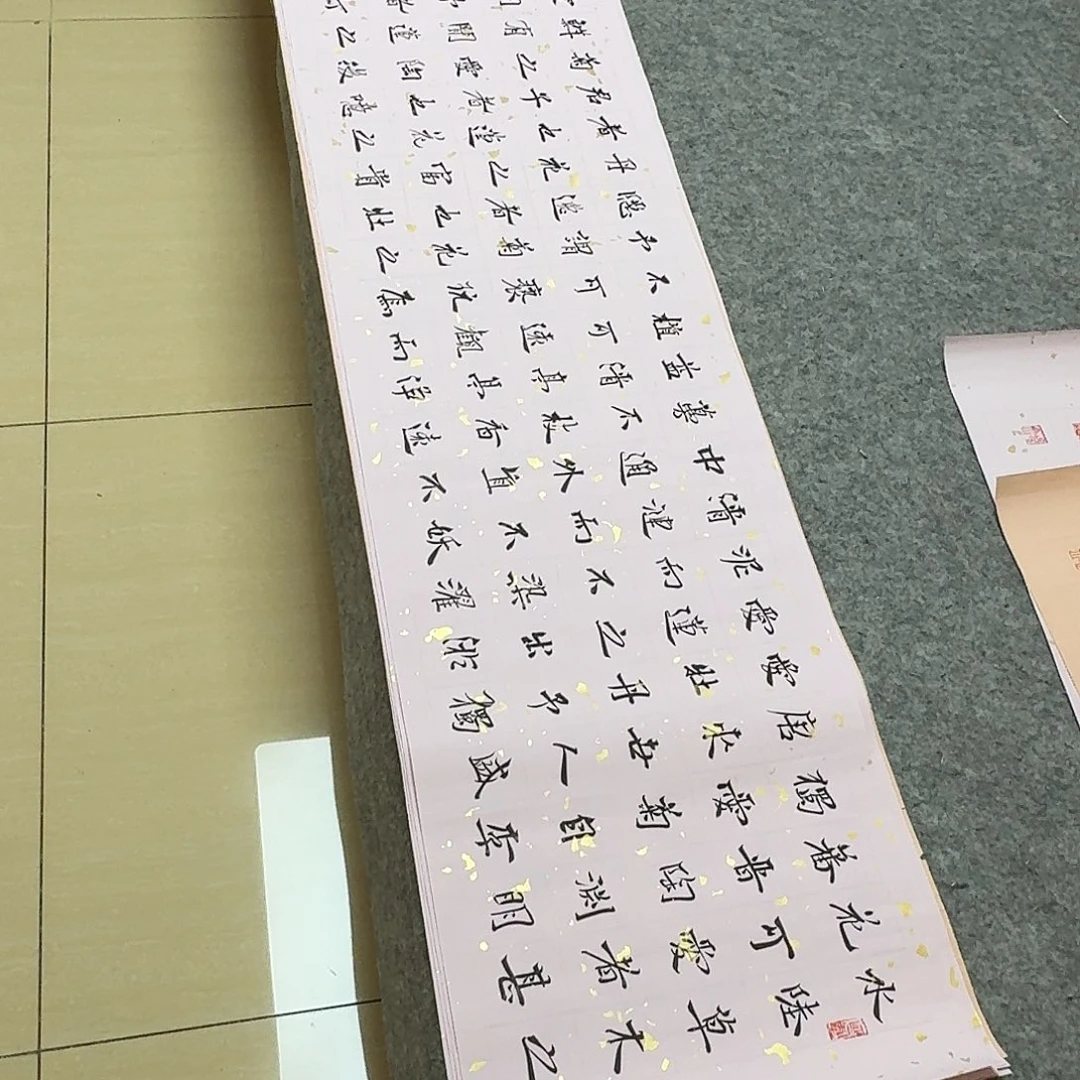 水陸草木之
花可愛者甚
蕃晉陶淵明
獨愛菊自李
唐來世人盛
愛牡丹予獨
愛蓮之出淤
泥而不染濯
清漣而不妖
中通外直不
蔓不枝香遠
益清亭亭淨
植可遠觀而
不可褻玩焉
予謂菊花之
隱逸者也牡
丹花之富貴
者也蓮花之
君子者也噫
菊之愛陶後
鮮有聞蓮之